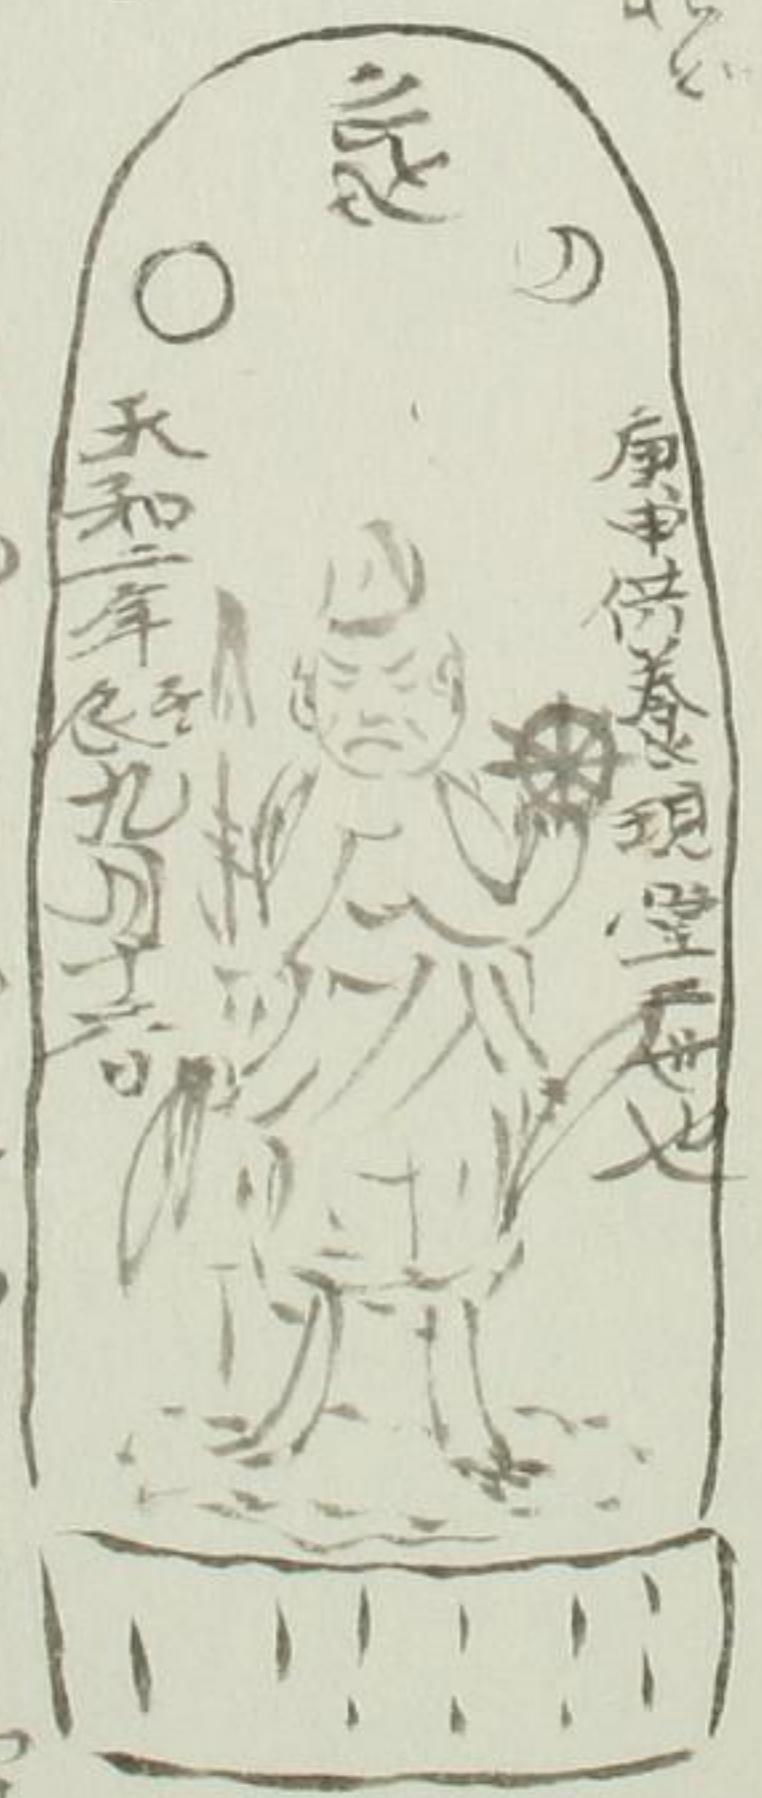 庚申供養現當二世也
天和二年壬戌九月十六日